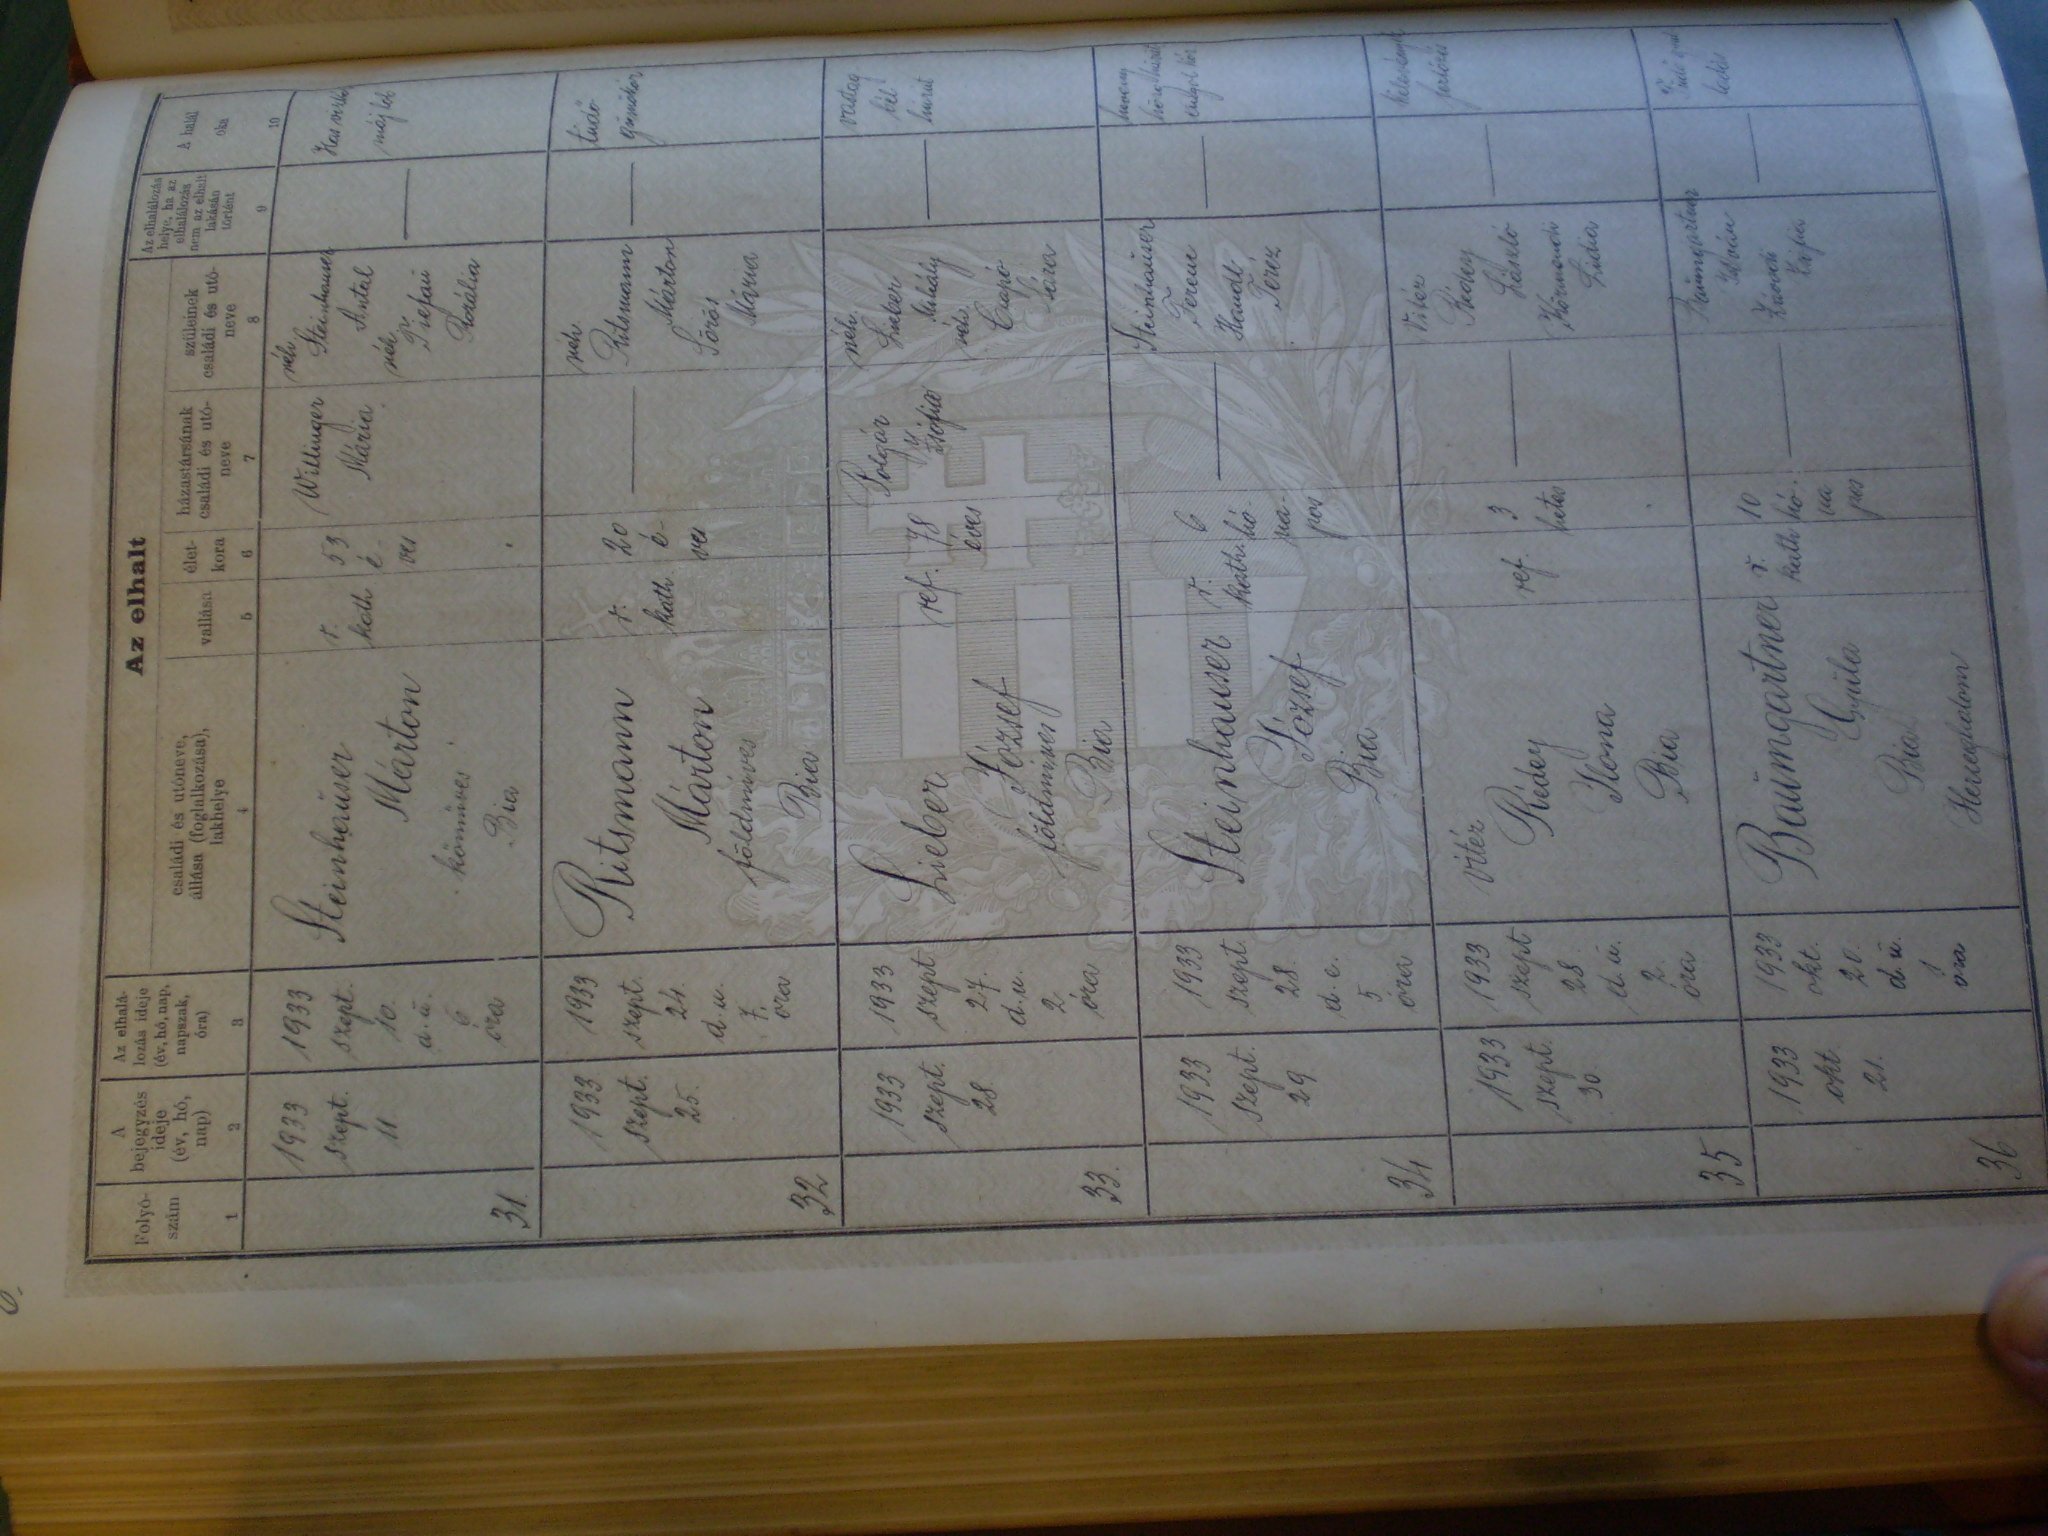 Az elhalt
Folyó-
szám
A
bejegyzés
ideje
(év, hó,
nap)
Az elhalá-
lozás ideje
(év, hó, nap,
napszak,
óra)
családi és utóneve,
állása (foglalkozása),
lakhelye
vallása
élet-
kora
házastársának
családi és utó-
neve
szüleinek
családi és utó-
neve
Az elhalálozás
helye, ha az
elhalálozás
nem az elhalt
lakásán
történt
A halál
oka
1
2
3
4
5
6
7
8
9
10
31.
1933
szept.
11
1933
szept.
10.
d. u.
6
óra
Steinhauser
Márton
kőmüves
Bia
r.
kath
53
é-
ves
Willinger
Mária
néh
Steinhauser
Antal
néh
Rozália
32
1933
szept.
25.
1933
szept.
24.
d. u.
7.
óra
Ritsmann
Márton
földmüves
Bia
r.
kath
20
é-
ves
néh
Ritsmann
Márton
Sörös
Mária
tüdő
gümőkór
33.
1933
szept.
28
1933
szept.
27.
d. u.
2
óra
Lieber
József
földmüves
Bia
ref.
78
éves
Polgár
Zsófia
néh.
Lieber
Mihály
néh.
Sára
vastag
bél
hurut
34
1933
szept.
29.
1933
szept.
28.
d. e.
5
óra
Steinhauser
József
Bia
r.
kath.
6
hó-
na-
pos
Steinhauser
Ferenc
Handl
Teréz
35
1933
szept.
30.
1933
szept
28.
d. u.
2.
óra
vitéz
Rédey
Ilona
Bia
ref.
3
hetes
Vitéz
Rédey
Körmendi
Lidia
36
1933
okt.
21.
1933
okt.
20.
d. u.
1
óra
Baumgartner
Gyula
Bia
Herceghalom
r.
kath
10
hó-
na
pos
Baumgartner
István